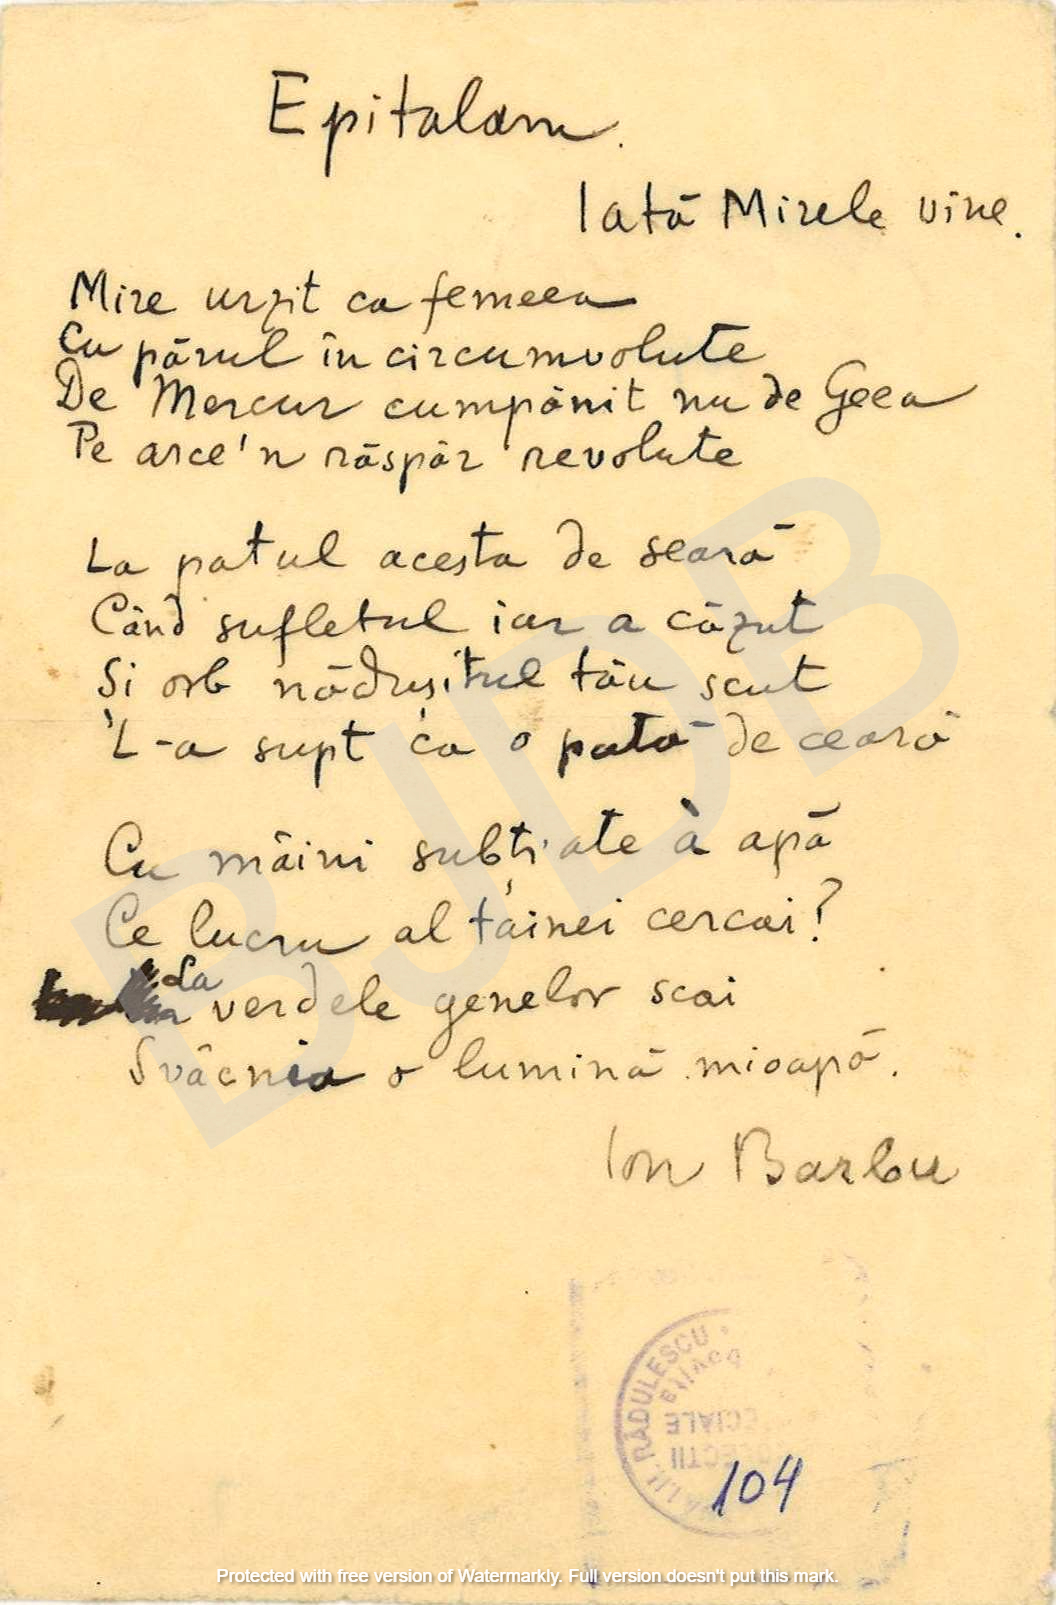 Epitalam.
Iată Mirele vine.
Mire urzit ca femeea
Cu părul în circumvolute
De Mercur cumpănit nu de Geea
Pe arce'n răspăr revolute
La patul acesta de seară
Când sufletul iar a căzut
Și orb nădușitul tău scut
L-a supt ca o pată de ceară
Cu mâini subțiate à apă
Ce lucru al tainei cercai?
La verdele genelor scai
Svâcnia o lumină mioapă.
Ion Barbu
BJDB
RĂDULESCU
104
Protected with free version of Watermarkly. Full version doesn't put this mark.